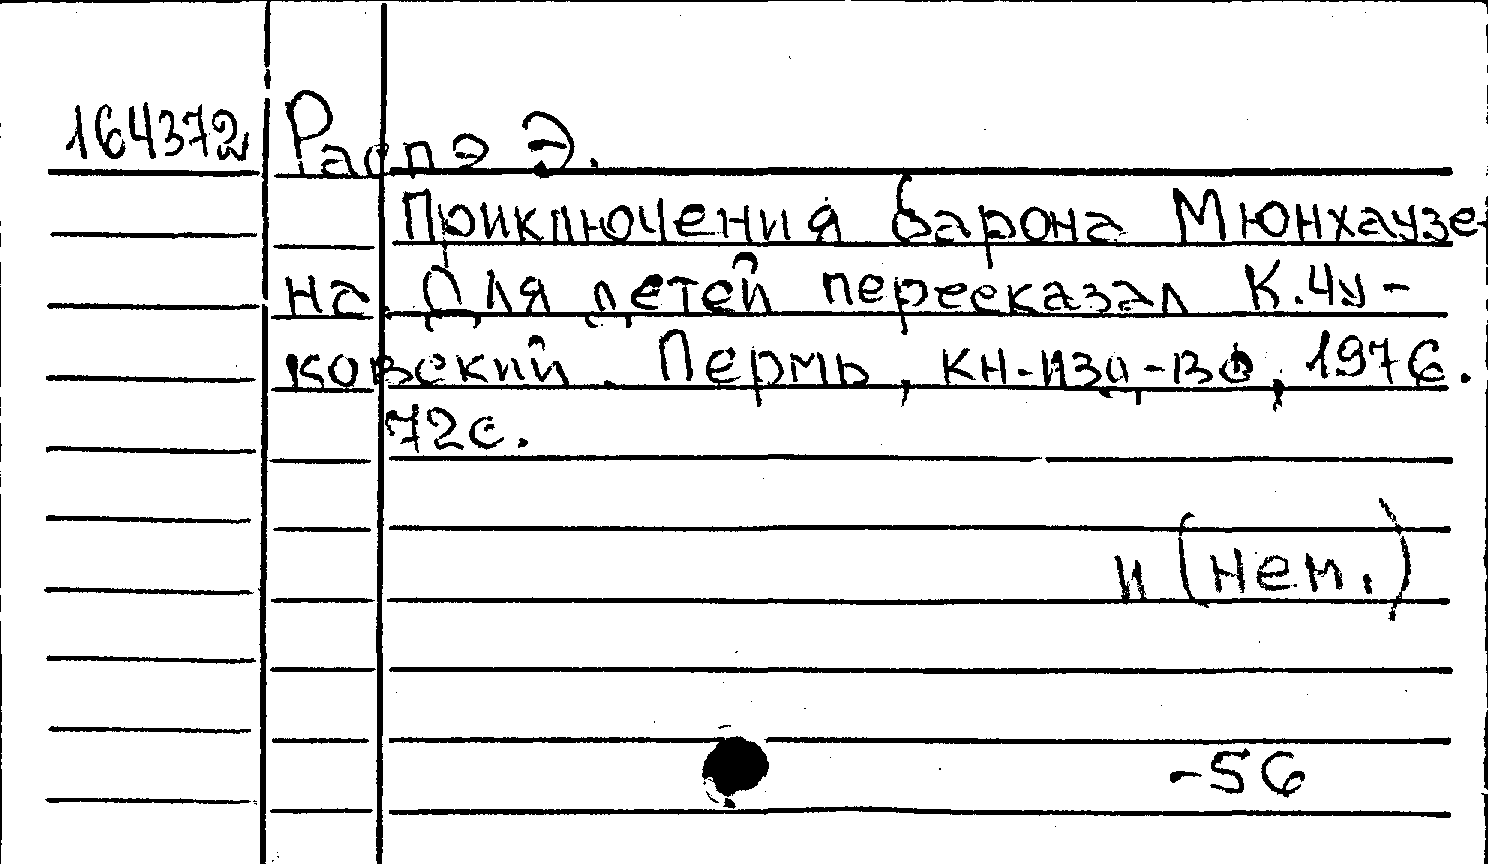 164372 Распэ Э.
Приключения барона Мюнхаузе-
на. Для детей пересказал К.Чу-
ковский. Пермь, кн-изд-во, 1976.
72с.
и (нем.)
-56